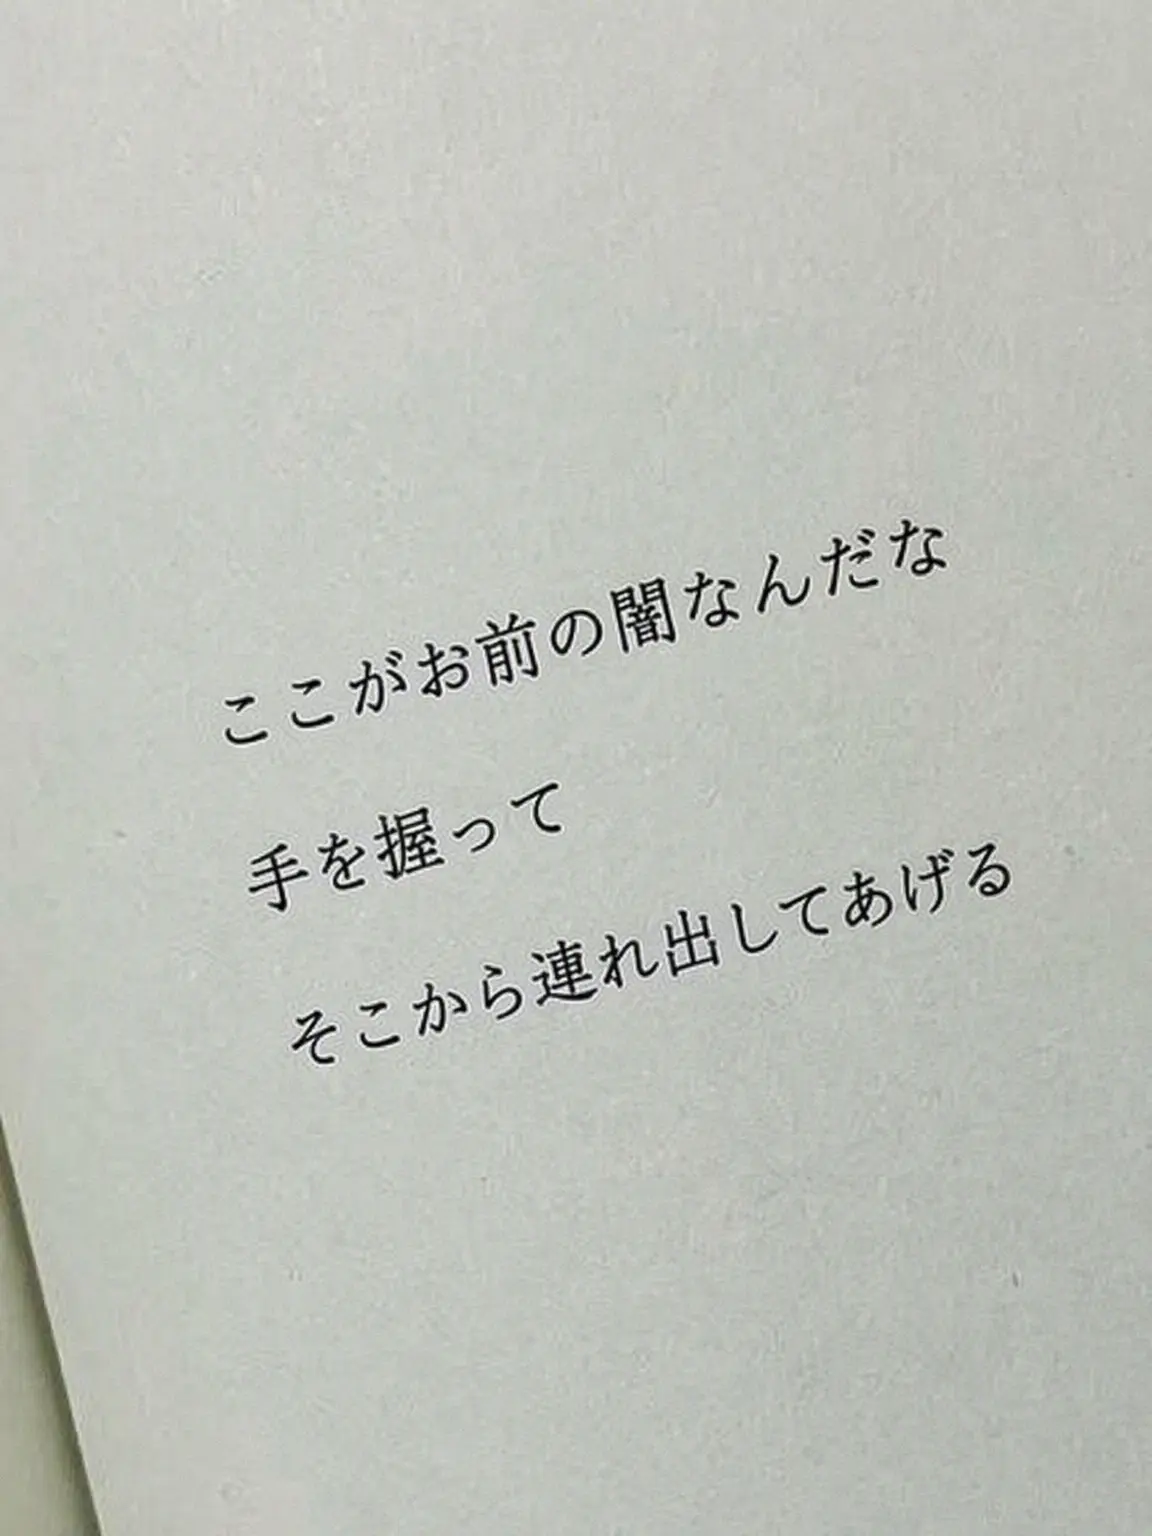 ここがお前の闇なんだな
手を握って
そこから連れ出してあげる